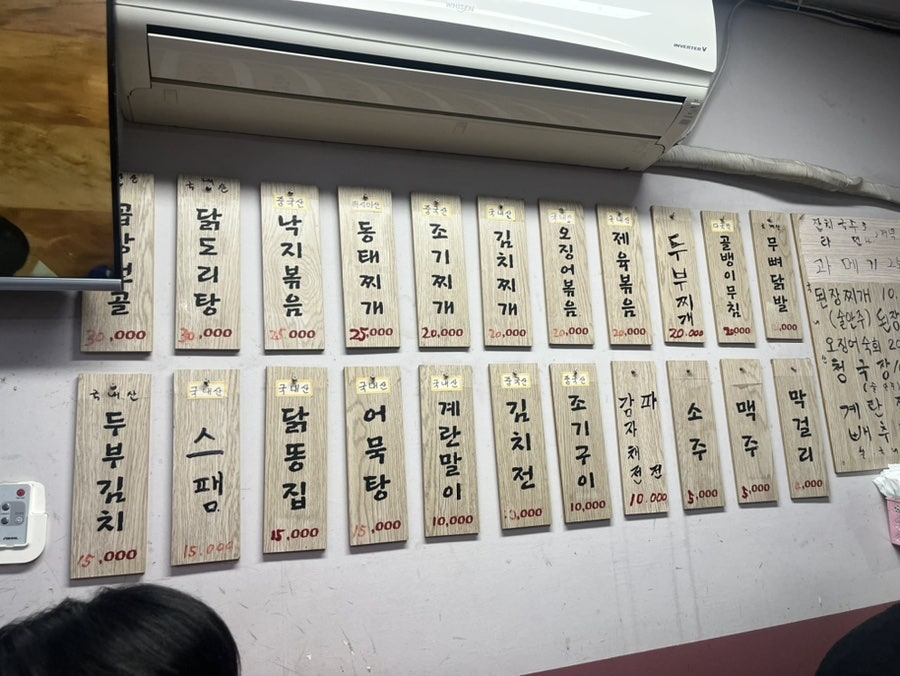 WHISEN
INVERTER V
30,000
국내산
닭도리탕
30,000
중국산
낙지볶음
25,000
러시아산
동태찌개
25,000
중국산
조기찌개
20,000
국내산
김치찌개
20,000
국내산
오징어볶음
20,000
국내산
제육볶음
20,000
두부찌개
20.000
골뱅이무침
20000
무뼈닭발
,000
잔치국수
라면
과메기
된장찌개 10.
(술안주) 된장
오징어숙회 20
청국장
계란
배추
국내산
두부김치
15,000
국내산
스팸
15.000
국내산
닭똥집
15,000
국내산
어묵탕
15,000
국내산
계란말이
10,000
중국산
김치전
10,000
중국산
조기구이
10,000
파전
감자채전
10.000
소주
5,000
맥주
5,000
막걸리
,000